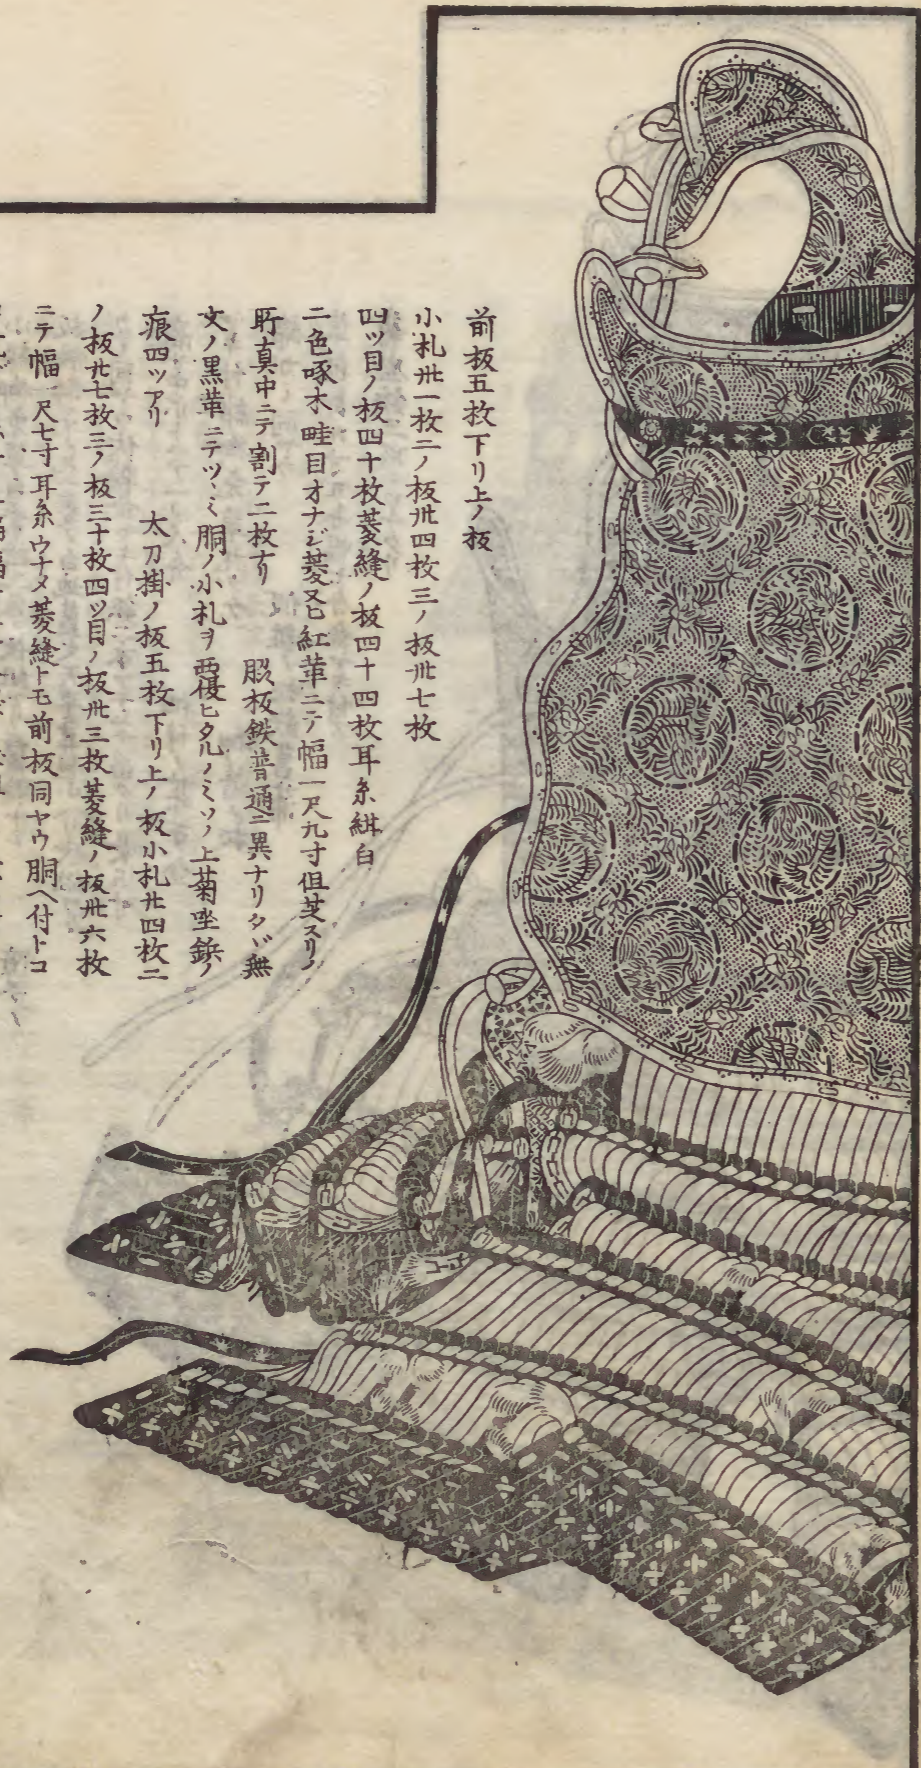 前板五枚下リ上ノ板
小札卅一枚二ノ板卅四枚三ノ板卅七枚
四ツ目ノ板四十枚菱縫ノ板四十四枚耳糸紺白
二色啄木畦目オナジ菱又ヒ紅革ニテ幅一尺九寸但草スリノ
所真中ニテ割テ二枚ナリ　脇板鉄普通ニ異ナリタバ無
文ノ黒革ニテツヽミ胴ノ小札ヲ覆ヒタルノミソノ上菊坐鋲ノ
痕四ツアリ　太刀掛ノ板五枚下リ上ノ板小札廿四枚二
ノ板廿七枚三ノ板三十枚四ツ目ノ板卅三枚菱縫ノ板卅六枚
ニテ幅一尺七寸耳糸ウナメ菱縫トモ前板同ヤウ胴ヘ付トコ